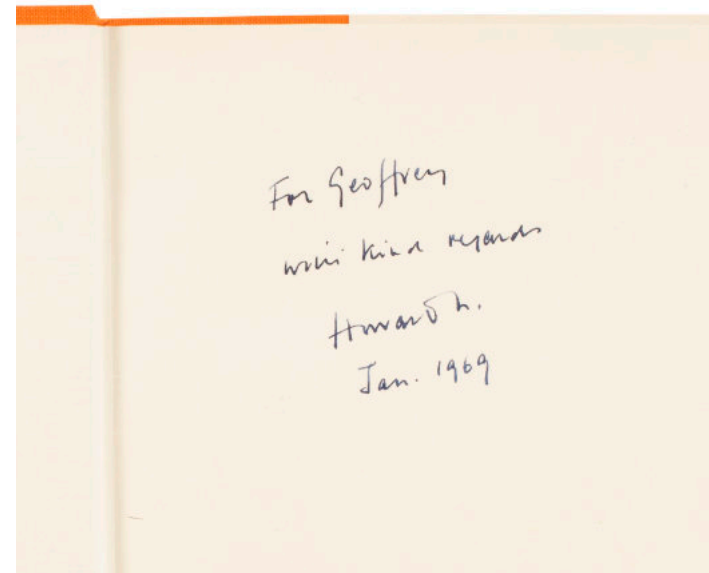 For Geoffrey
with kind regards
Howard N.
Jan. 1969